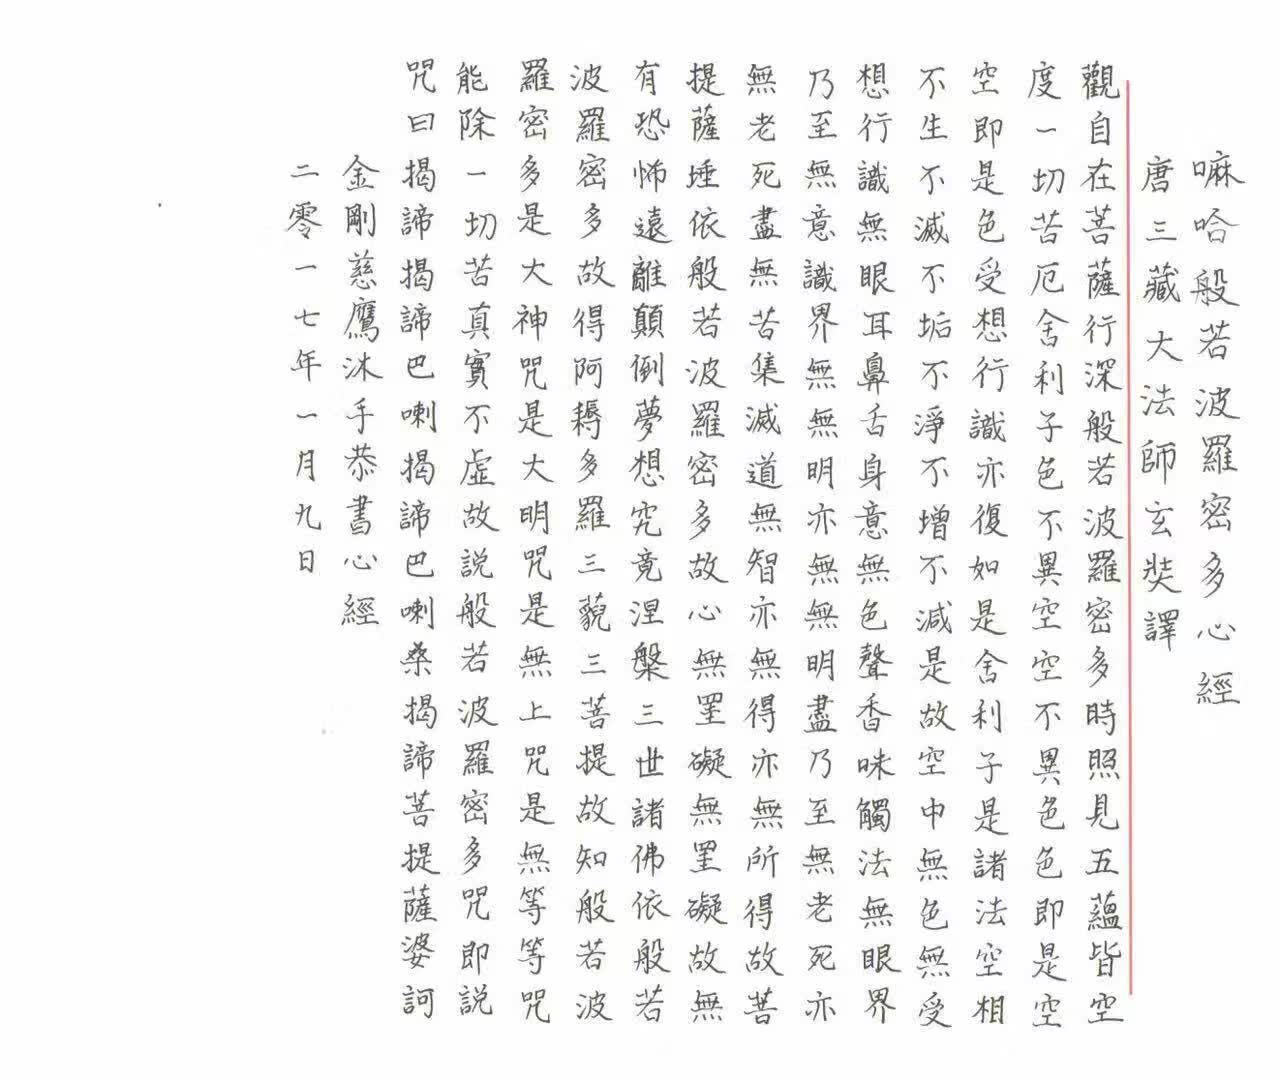 嘛哈般若波羅密多心經
唐三藏大法師玄奘譯
觀自在菩薩行深般若波羅密多時照見五蘊皆空
度一切苦厄舍利子色不異空空不異色色即是空
空即是色受想行識亦復如是舍利子是諸法空相
不生不滅不垢不淨不增不減是故空中無色無受
想行識無眼耳鼻舌身意無色聲香味觸法無眼界
乃至無意識界無無明亦無無明盡乃至無老死亦
無老死盡無苦集滅道無智亦無得亦無所得故菩
提薩埵依般若波羅密多故心無罣礙無罣礙故無
有恐怖遠離顛倒夢想究竟涅槃三世諸佛依般若
波羅密多故得阿耨多羅三藐三菩提故知般若波
羅密多是大神咒是大明咒是無上咒是無等等咒
能除一切苦真實不虛故説般若波羅密多咒即説
咒曰揭諦揭諦巴喇揭諦巴喇桑揭諦菩提薩婆訶
金剛慈鷹沐手恭書心經
二零一七年一月九日